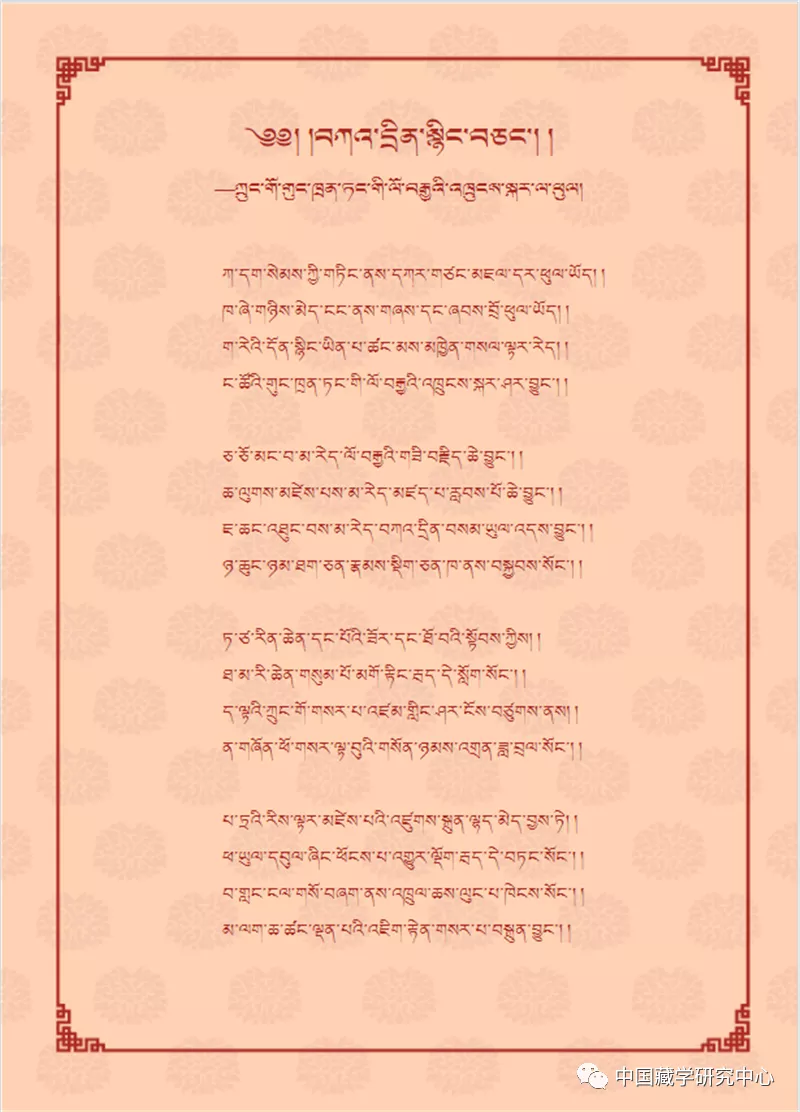 ༄༅། །བཀའ་དྲིན་སྙིང་བཅང་། །
—ཀྲུང་གོ་གུང་ཁྲན་ཏང་གི་ལོ་བརྒྱའི་འཁྲུངས་སྐར་ལ་ཕུལ།
ཀ་དག་སེམས་ཀྱི་གཏིང་ནས་དཀར་གཙང་མཇལ་དར་ཕུལ་ཡོད། །
ཁ་ཞེ་གཉིས་མེད་ངང་ནས་གཞས་དང་ཞབས་བྲོ་ཕུལ་ཡོད། །
ག་རེའི་དོན་སྙིང་ཡིན་པ་ཚང་མས་མཁྱེན་གསལ་ལྟར་རེད། །
ང་ཚོའི་གུང་ཁྲན་ཏང་གི་ལོ་བརྒྱའི་འཁྲུངས་སྐར་ཤར་བྱུང་། །
ཅ་ཅོ་མང་བ་མ་རེད་ལོ་བརྒྱའི་གཟི་བརྗིད་ཆེ་བྱུང་། །
ཆ་ལུགས་མཛེས་པས་མ་རེད་མཛད་པ་རླབས་པོ་ཆེ་བྱུང་། །
ཇ་ཆང་འཐུང་བས་མ་རེད་བཀའ་དྲིན་བསམ་ཡུལ་འདས་བྱུང་། །
ཉ་ཆུང་ཉམ་ཐག་ཅན་རྣམས་སྡིག་ཅན་ཁ་ནས་བསྐྱབས་སོང་། །
ཏ་ཙ་རིན་ཆེན་དང་པོའི་ཟོར་དང་ཐོ་བའི་སྟོབས་ཀྱིས། །
ཐ་མ་རི་ཆེན་གསུམ་པོ་མགོ་རྟིང་རྦད་དེ་སློག་སོང་། །
ད་ལྟའི་ཀྲུང་གོ་གསར་པ་འཛམ་གླིང་ཤར་ངོས་བཙུགས་ནས། །
ན་གཞོན་ཕོ་གསར་ལྟ་བུའི་གསོན་ཉམས་འགྲན་ཟླ་བྲལ་སོང་། །
པ་ཏྲའི་རིས་ལྟར་མཛེས་པའི་འཛུགས་སྐྲུན་ལྷད་མེད་བྱས་ཏེ། །
ཕ་ཡུལ་དབུལ་ཞིང་ཕོངས་པ་འགྱུར་ལྡོག་རྦད་དེ་བཏང་སོང་། །
བ་གླང་ངལ་གསོ་བཞག་ནས་འཁྲུལ་ཆས་ལུང་པ་ཁེངས་སོང་། །
མ་ལག་ཆ་ཚང་ལྡན་པའི་འཇིག་རྟེན་གསར་པ་བསྐྲུན་བྱུང་། །
中国藏学研究中心